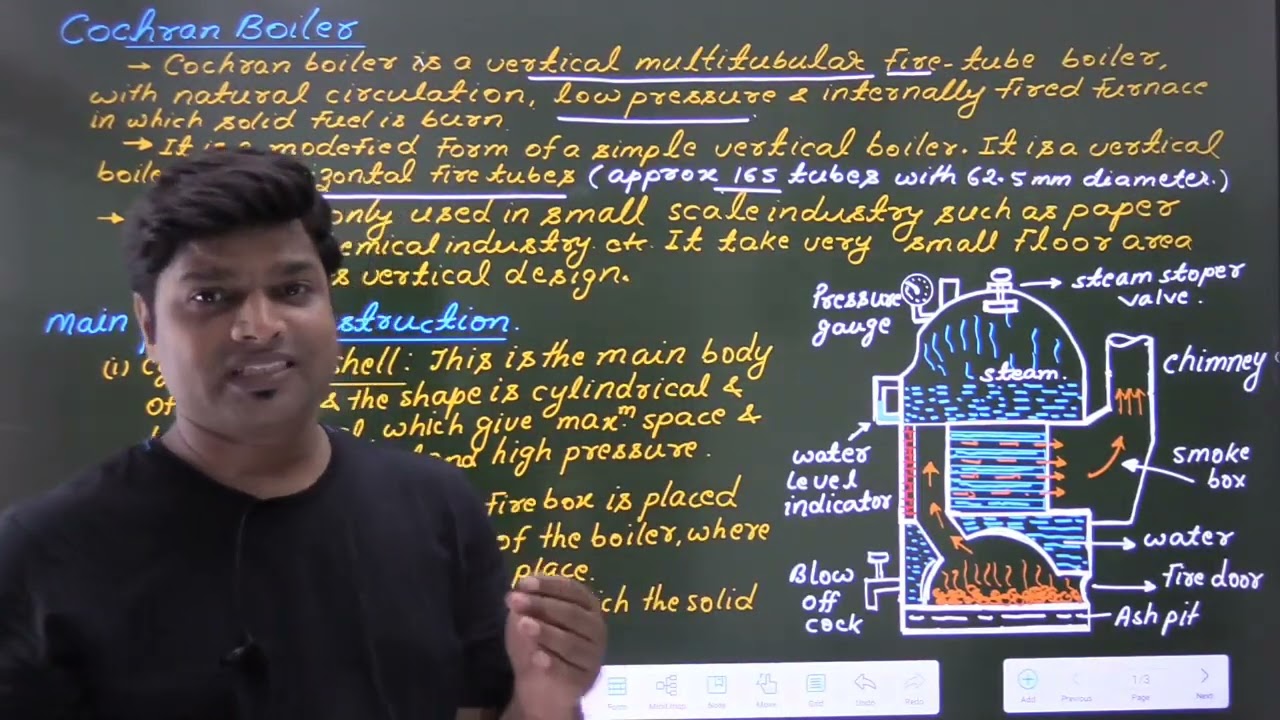 Cochran Boiler
→ Cochran boiler is a vertical multitubular fire-tube boiler,
with natural circulation, low pressure & internally fired furnace
in which solid fuel is burn
→ It is a modefied form of a simple vertical boiler. It is a vertical
fire tubes (approx 165 tubes with 62.5mm diameter.)
→ only used in small scale industry such as paper
industry etc. It take very small floor area
vertical design.
Main
(i) shell: This is the main body
& the shape is cylindrical &
which give max.m space &
high pressure.
fire box is placed
of the boiler, where
place.
the solid
Pressure
gauge
steam stoper
valve.
steam.
chimney
water
level
indicator
smoke
box
water
Blow
off
cock
fire door
Ash pit
Form
Note
Move
Grid
Undo
Redo
Add
Previous
1/3
Page
Next